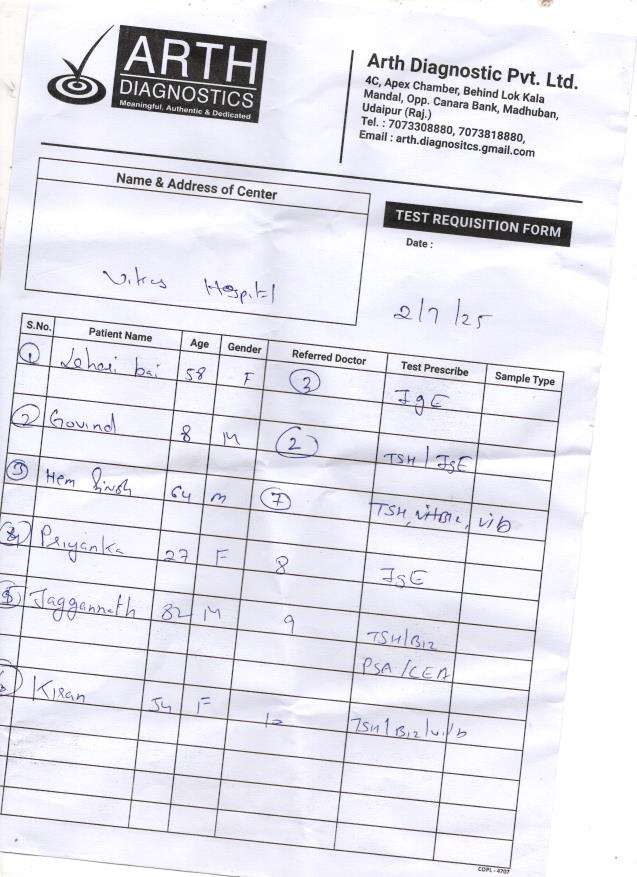 ARTH
DIAGNOSTICS
Meaningful, Authentic & Dedicated
Arth Diagnostic Pvt. Ltd.
4C, Apex Chamber, Behind Lok Kala
Mandal, Opp. Canara Bank, Madhuban,
Udaipur (Raj.)
Tel. : 7073308880, 7073818880,
Email : arth.diagnositcs.gmail.com
Name & Address of Center
Vikas Hospital
TEST REQUISITION FORM
Date :
2/7/25
S.No. Patient Name Age Gender Referred Doctor Test Prescribe Sample Type
1 bai 58 F 3 IgE
2 Govind 8 M 2 TSH / IgE
3 Hem Singh 64 m 7 TSH, VitB12, Vi D
4 Priyanka 27 F 8 IgE
5 Jaggannath 82 M 9 TSH/B12
PSA/CEA
6 Kiran 54 F 10 TSH/B12/vi D
COPL - 4707